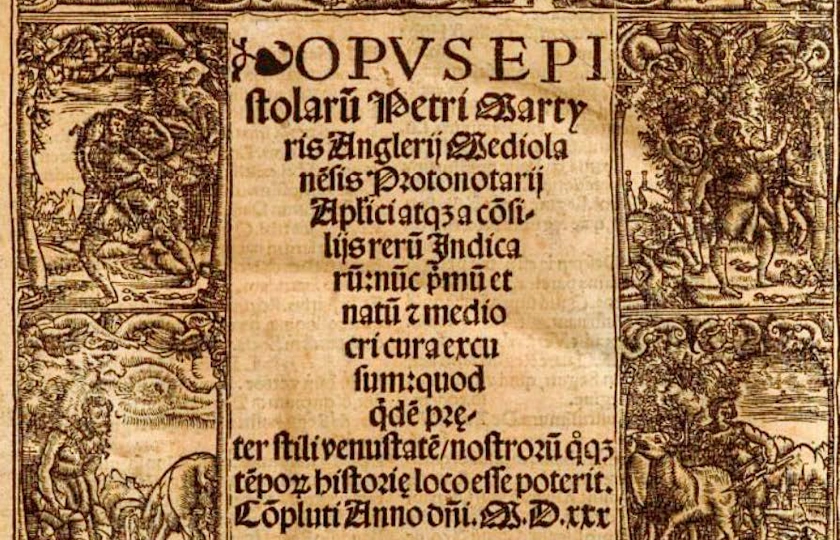 ❧OPVS EPI
ſtolarũ Petri Marty
ris Anglerij Mediola
nẽſis Protonotarij
Aplici atqꝫ a cõſi-
lijs rerũ Indica
rũ: nũc p̾mũ et
natũ ⁊ medio
cri cura excu
ſum: quod
q̾dẽ pꝛę-
ter ſtili venuſtatẽ/noſtrorũ q̊qꝫ
tẽpoꝝ hiſtorię loco eſſe poterit.
Cõpluti Anno dñi. M. D. xxx